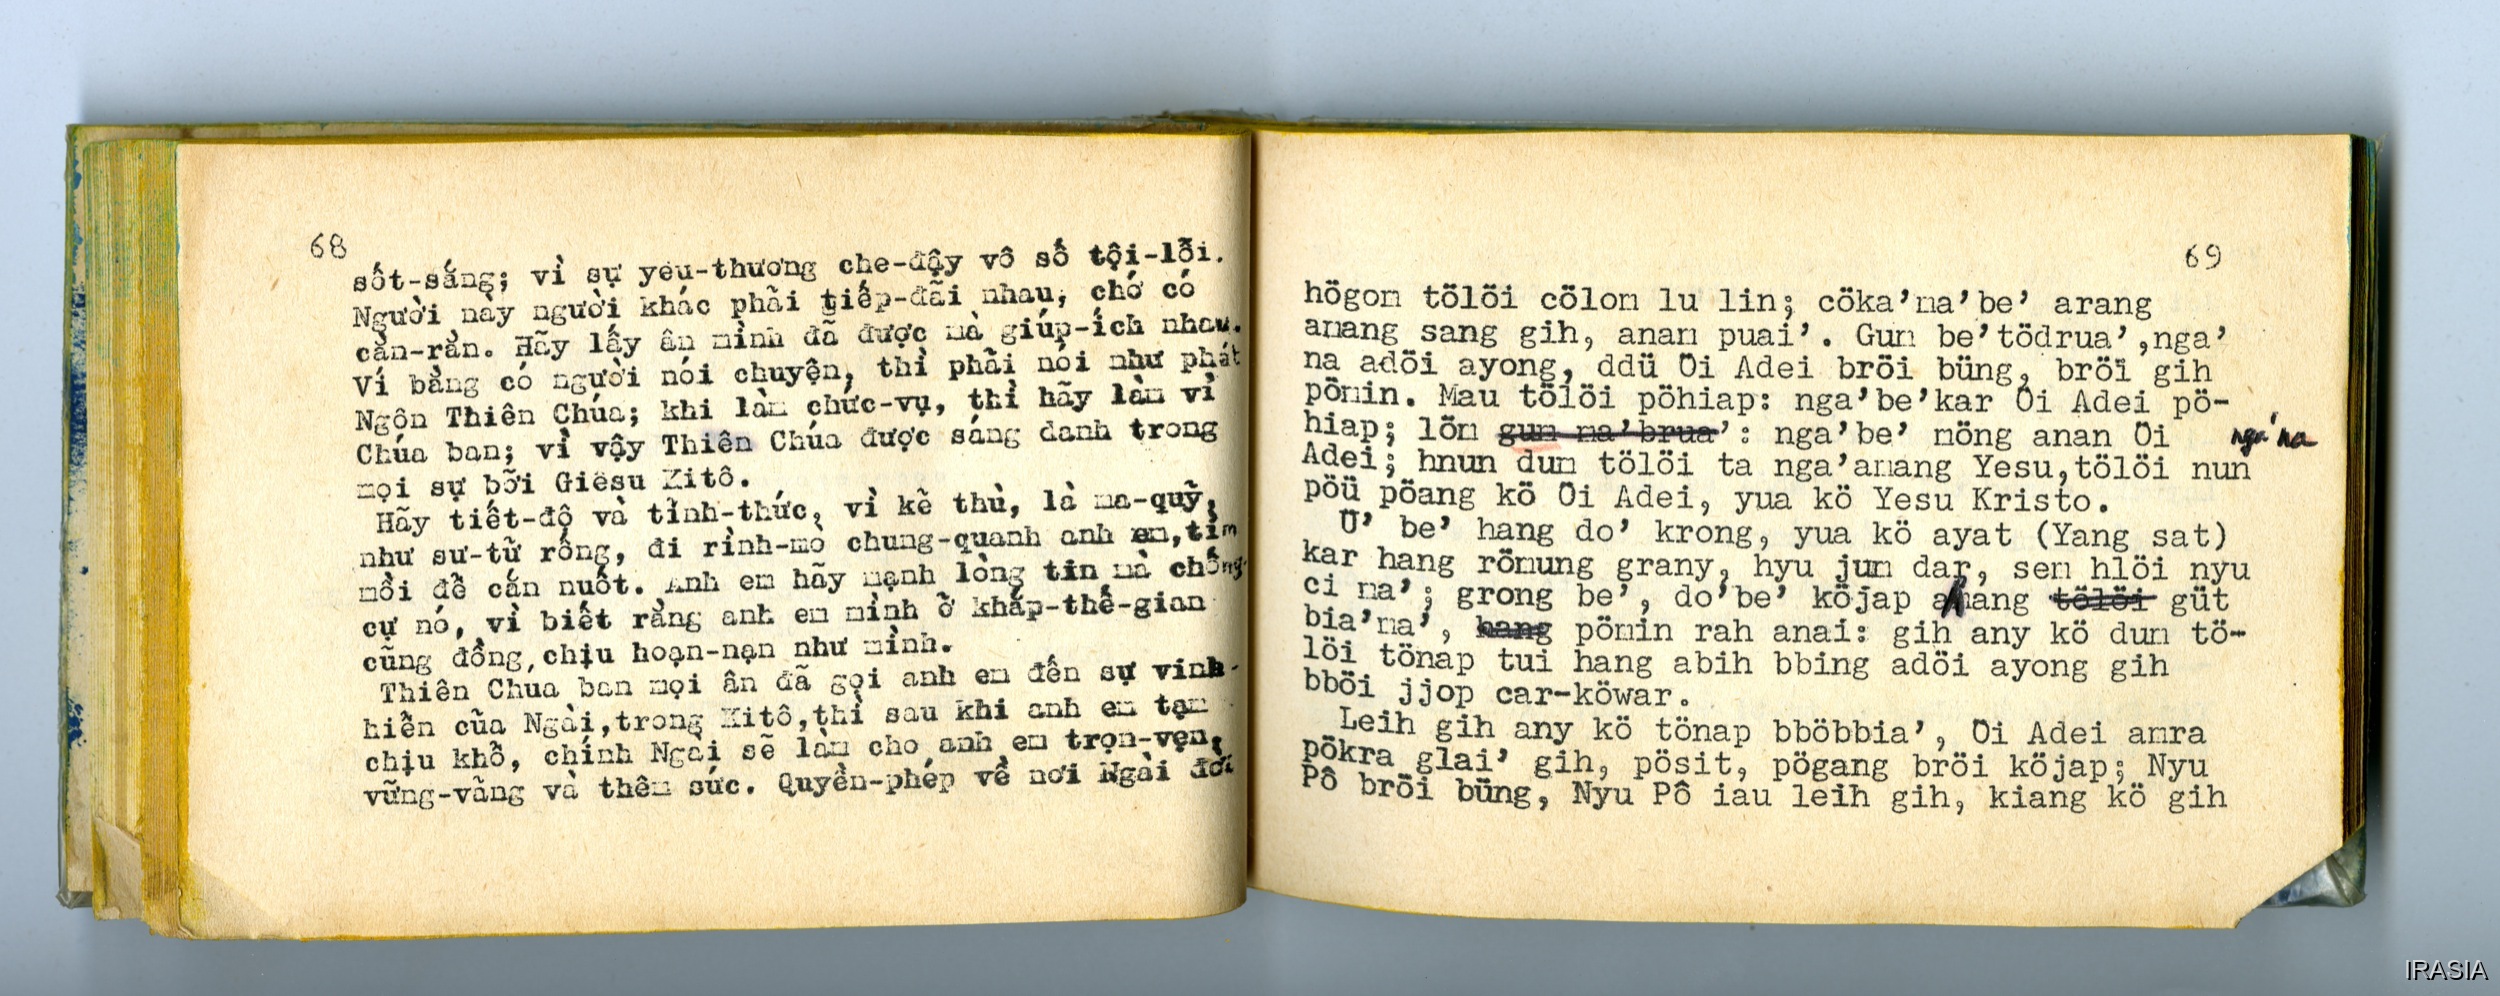 68
sốt-sắng; vì sự yêu-thương che-đậy vô số tội-lỗi.
Người này người khác phải tiếp-đãi nhau, chớ có
cằn-rằn. Hãy lấy ân mình đã được mà giúp-ích nhau.
Ví bằng có người nói chuyện, thì phải nói như phát
Ngôn Thiên Chúa; khi làm chức-vụ, thì hãy làm vì
Chúa ban; vì vậy Thiên Chúa được sáng danh trong
mọi sự bởi Giêsu Kitô.
Hãy tiết-độ và tỉnh-thức, vì kẻ thù, là ma-quỷ,
như sư-tử rống, đi rình-mò chung-quanh anh em, tìm
mồi để cắn nuốt. Anh em hãy mạnh lòng tin mà chống-
cự nó, vì biết rằng anh em mình ở khắp-thế-gian
cũng đồng, chịu hoạn-nạn như mình.
Thiên Chua ban mọi ân đã gọi anh em đến sự vinh-
hiển của Ngài, trong Kitô, thì sau khi anh em tạm
chịu khổ, chính Ngài sẽ làm cho anh em trọn-vẹn,
vững-vàng và thêm sức. Quyền-phép về nơi Ngài đời
69
högom tölöi cölom lu lin; cöka'ma'be' arang
amang sang gih, anam puai'. Gum be'tödrua',nga'
na adöi ayong, ddü Öi Adei bröi büng, bröi gih
pömin. Mau tölöi pöhiap: nga'be'kar Öi Adei pö-
hiap; löm gum ma'brua': nga'be' möng anan Öi nga'na
Adei; hnun dum tölöi ta nga'amang Yesu,tölöi nun
pöü pöang kö Öi Adei, yua kö Yesu Kristo.
Ü' be' hang do' krong, yua kö ayat (Yang sat)
kar hang römung grany, hyu jum dar, sem hlöi nyu
ci ma'; grong be', do'be' köjap amang tölöi güt
bia'ma', hang pömin rah anai: gih any kö dum tö-
löi tönap tui hang abih bbing adöi ayong gih
bböi jjop car-köwar.
Leih gih any kö tönap bböbbia', Öi Adei amra
pökra glai' gih, pösit, pögang bröi köjap; Nyu
Pô bröi büng, Nyu Pô iau leih gih, kiang kö gih
IRASIA